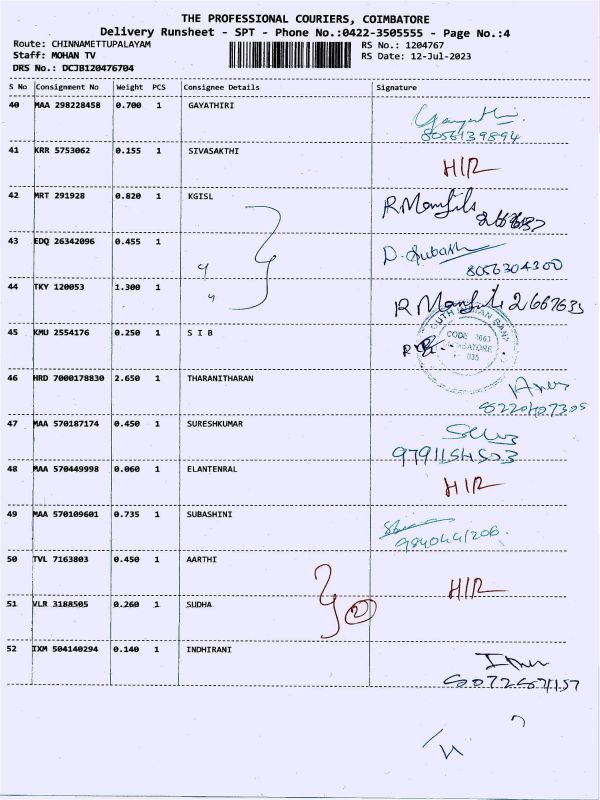 THE PROFESSIONAL COURIERS, COIMBATORE
Delivery Runsheet - SPT - Phone No.:0422-3505555 - Page No.:4
Route: CHINNAMETTUPALAYAM RS No.: 1204767
Staff: MOHAN TV RS Date: 12-Jul-2023
DRS No.: DCJB120476704
S No Consignment No Weight PCS Consignee Details Signature
40 MAA 298228458 0.700 1 GAYATHIRI
8056139894
41 KRR 5753062 0.155 1 SIVASAKTHI
H/R
42 MRT 291928 0.820 1 KGISL
43 EDQ 26342096 0.455 1 D. Subash
8056304300
44 TKY 120053 1.300 1
45 KMU 2554176 0.250 1 S I B
CODE
035
46 HRD 7000178830 2.650 1 THARANITHARAN
47 MAA 570187174 0.450 1 SURESHKUMAR
9791154503
48 MAA 570449998 0.060 1 ELANTENRAL
H/R
49 MAA 570109601 0.735 1 SUBASHINI
50 TVL 7163803 0.450 1 AARTHI
H/R
51 VLR 3188505 0.260 1 SUDHA
2
52 IXM 504140294 0.140 1 INDHIRANI